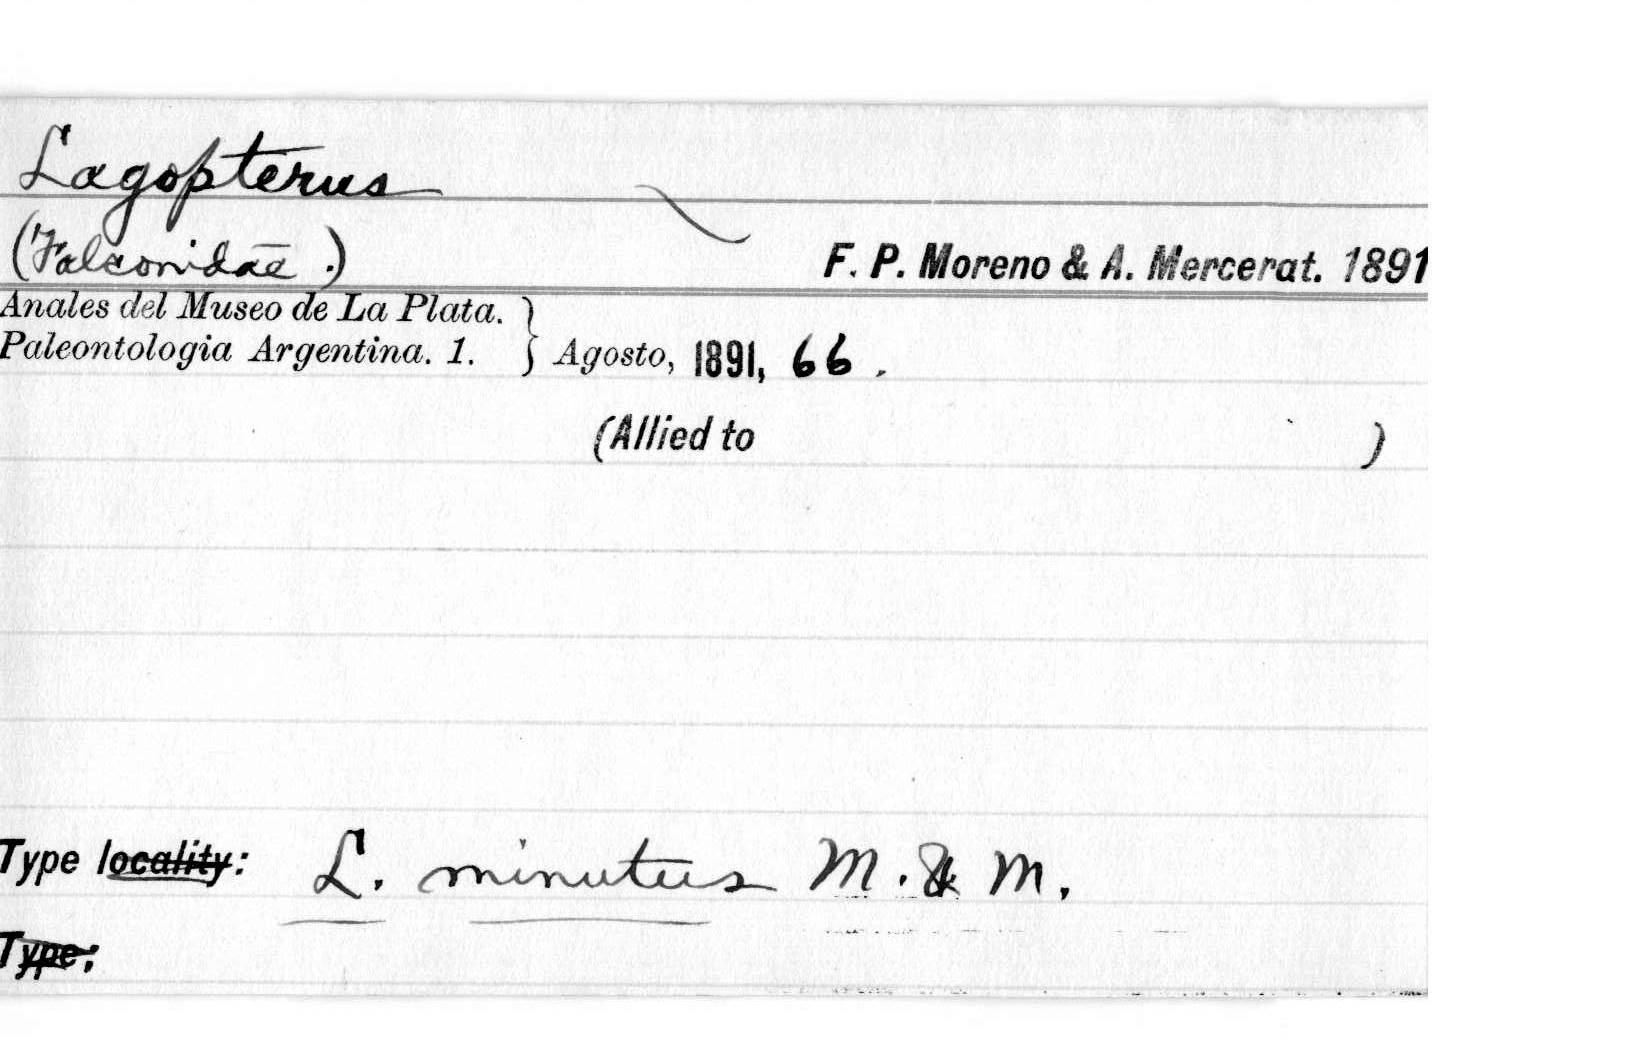 Lagopterus
(Falconidae.)
F. P. Moreno & A. Mercerat. 1891
Anales del Museo de La Plata.
Paleontologia Argentina. 1. } Agosto, 1891, 66.
(Allied to )
Type locality: L. minutus M. & M.
Type: